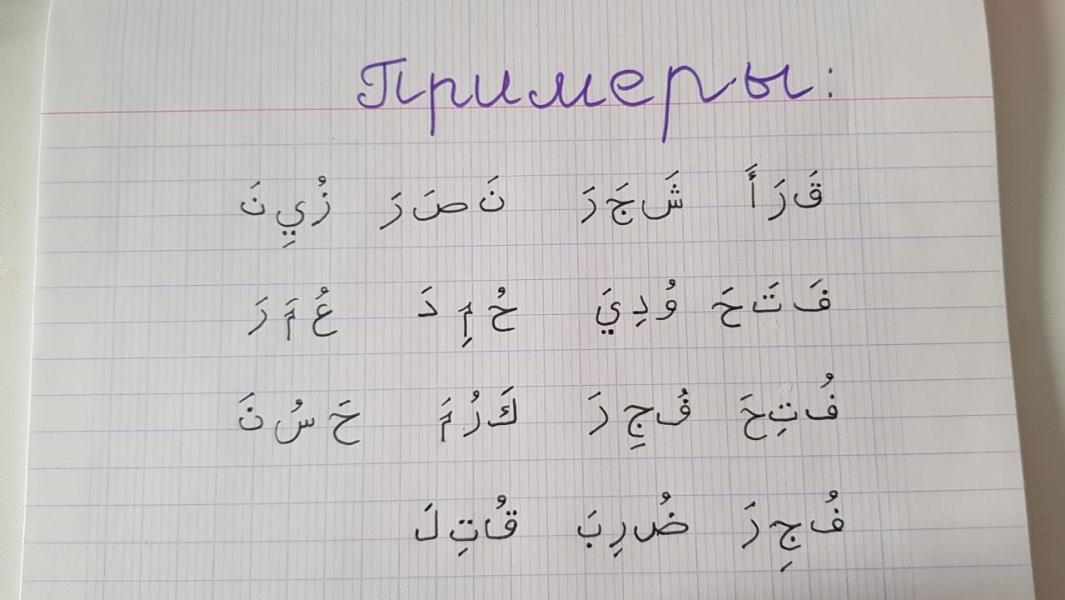 Примеры:
قَرَأَ شَجَرَ نَصَرَ زُيِنَ
فَتَحَ وُدِيَ حُمِدَ عُمَرَ
فُتِحَ فُجِرَ كَرُمَ حَسُنَ
فُجِرَ ضُرِبَ قُتِلَ